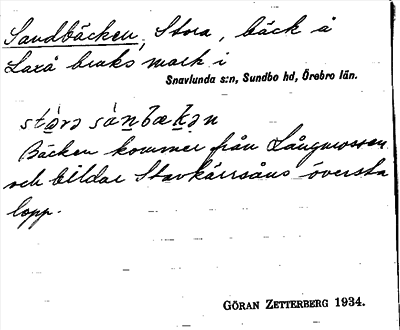 Sandbäcken, Stora, bäck å
Laxå bruks mark i
Snavlunda s:n, Sundbo hd, Örebro län.
Bäcken kommer från Långmossen
och bildar Stavkärrsåns översta
lopp.
GÖRAN ZETTERBERG 1934.